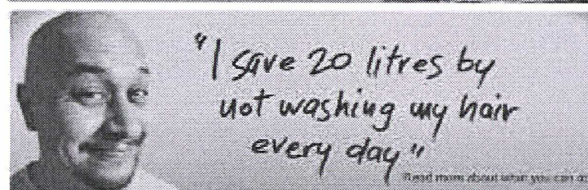 "I save 20 litres by
not washing my hair
every day"
Read more about what you can